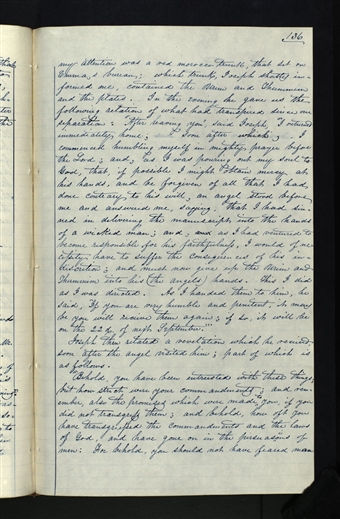 136
my attention was a red morocco trunk, that set on
Emma,s bureau; which trunk, Joseph shortly in-
formed me, contained the Urim and Thummim
and the plates. In the evening he gave us the
following relation of what had transpired since our
separation: "After leaving you," said Joseph, "I returned
immediately, home, Soon after which, I
commenced humbling myself in mighty prayer before
the Lord; and, as I was pouring out my soul to
God, that, if possible I might obtain mercy at
his hands, and be forgiven of all that I had,
done contrary, to his will, an angel stood before
me and answered me, saying, that I had, sin-
ned in delivering the manuscript into the hands
of a wicked man; and, and as I had ventured to
become responsible for his faithfulness, I would of ne-
cessity, have to suffer the consequences of his in-
discretion; and must now give up the Urim and
Thummim into his (the angels) hands. This I did
as I was directed. As I handed them to him, he
said, If you are very humble and penitent, it may
be you will receive them again; if so, it will be
on the 22d of next September."
Joseph then related a revelation which he received
soon after the angel visited him; part of which is
as follows.
"Behold, you have been intrusted with these things,
but how strict were your commandments; and rem-
ember, also the promises which were made to you, if you
did not transgress them; and behold, how oft you
have transgressed the commandments and the laws
of God, and have gone on in the persuasions of
men: For behold, you should not have feared man